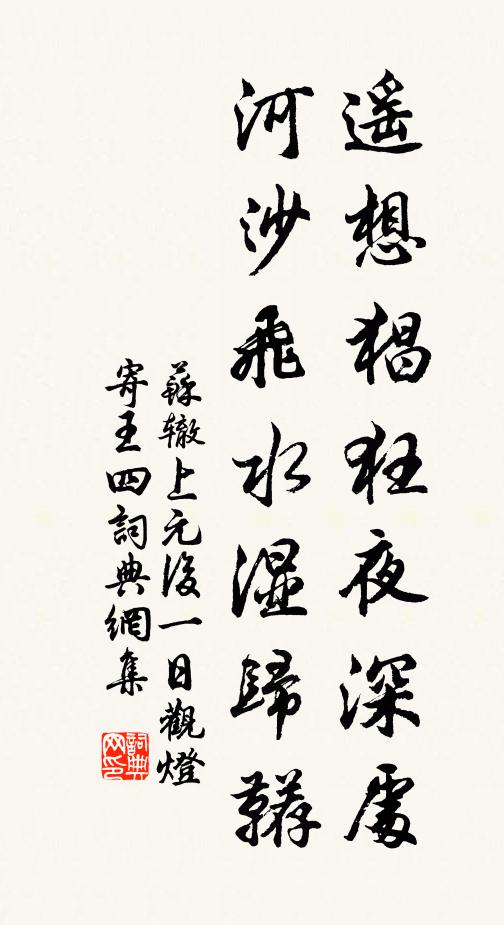 遥想猖狂夜深處
河沙飛水湿歸鞯
蘇辙上元後一日觀燈
寄王四詞典網集
詞典网印